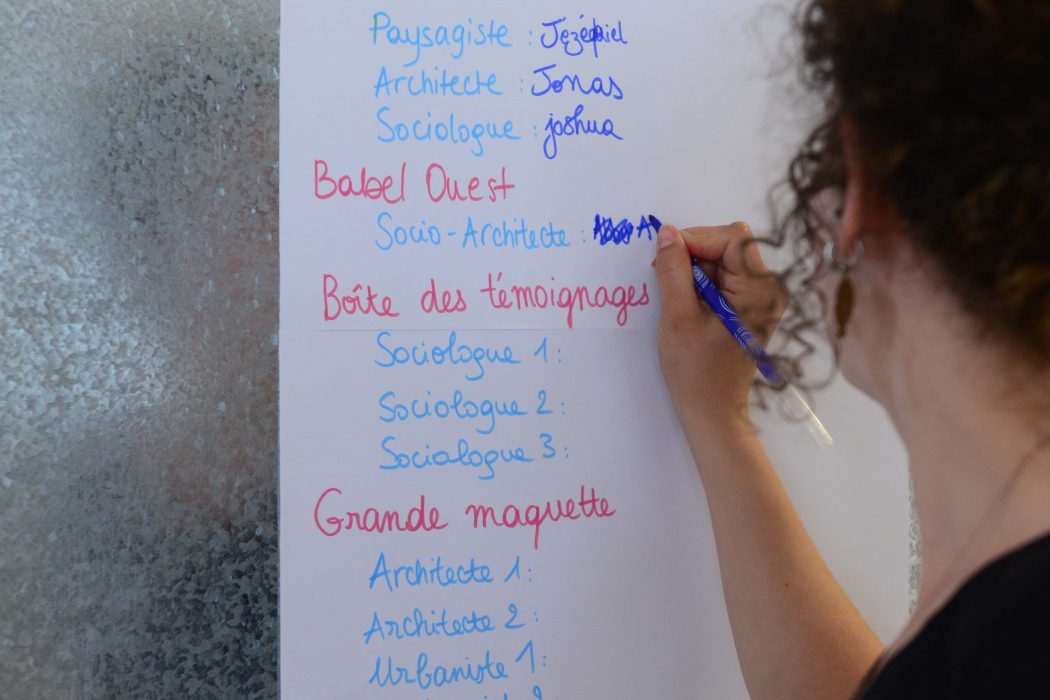 Paysagiste : Jézéquiel
Architecte : Jonas
Sociologue : joshua
Babel Ouest
Socio-Architecte : A
Boîte des témoignages
Sociologue 1 :
Sociologue 2 :
Sociologue 3 :
Grande maquette
Architecte 1 :
Architecte 2 :
Urbaniste 1 :